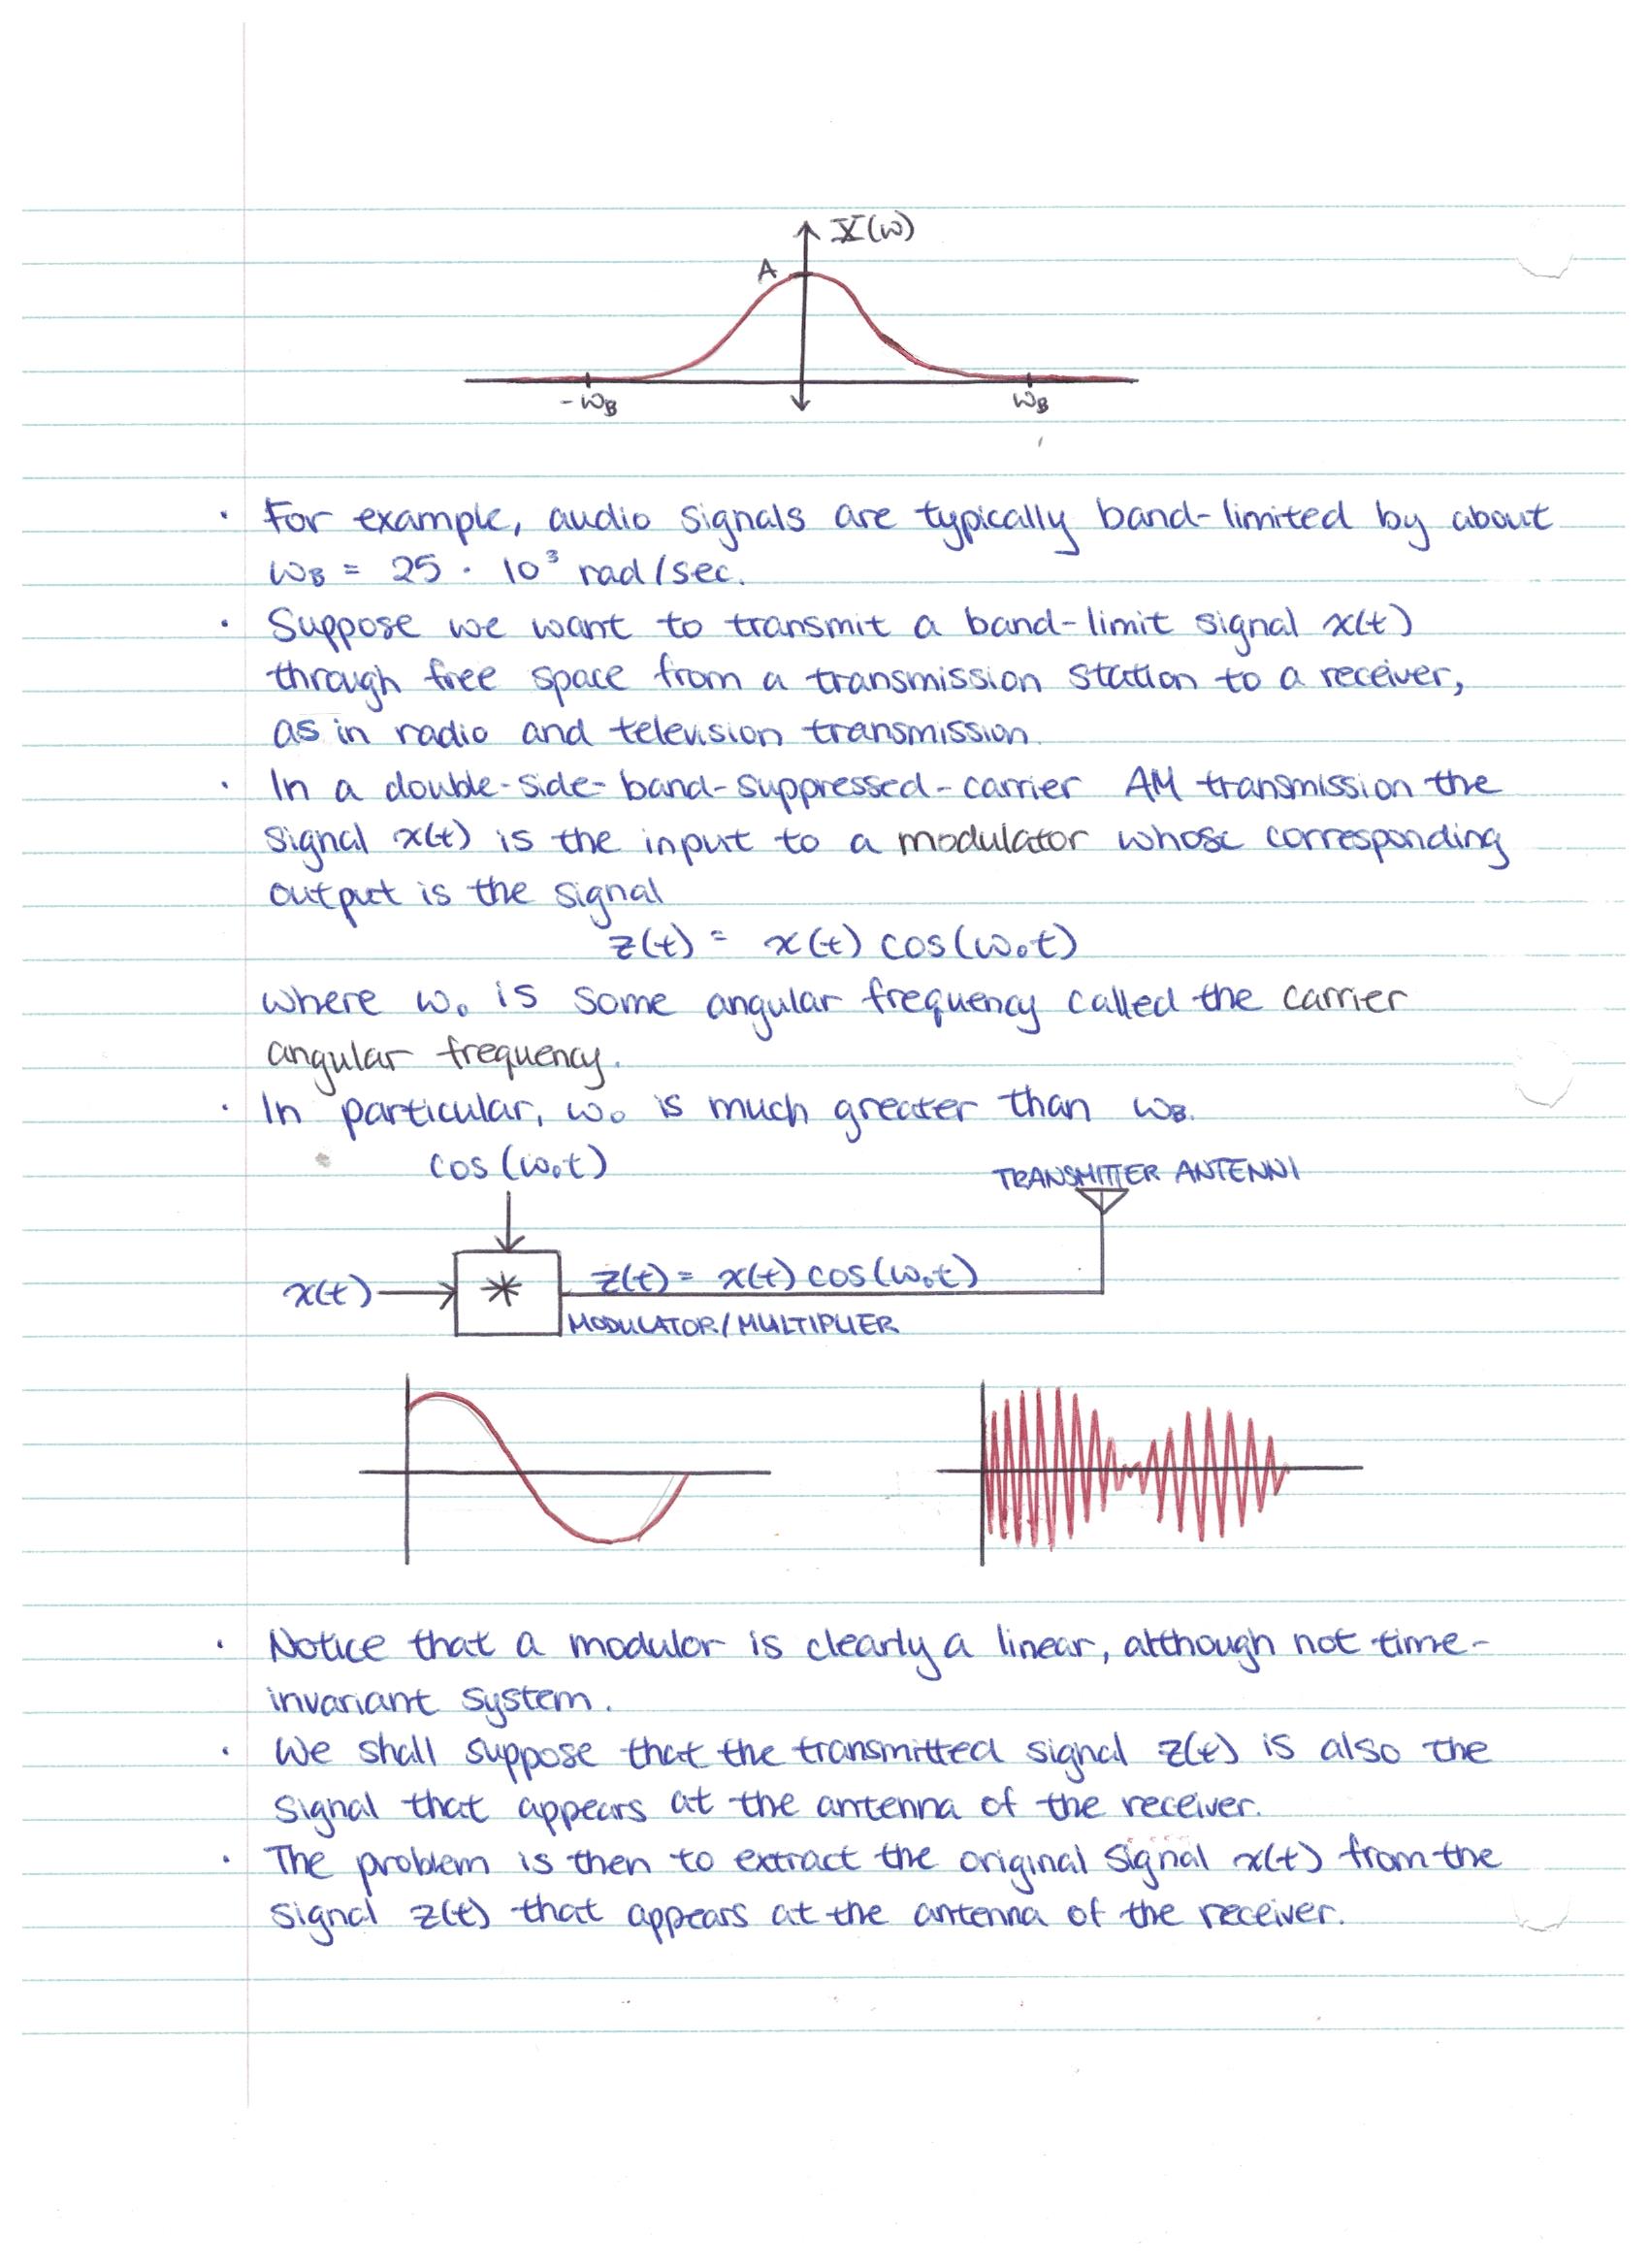 X(ω)
A
-ωB
ωB
· For example, audio signals are typically band-limited by about
ωB = 25 · 10³ rad/sec.
· Suppose we want to transmit a band-limit signal x(t)
through free space from a transmission station to a receiver,
as in radio and television transmission.
· In a double-side-band-suppressed-carrier AM transmission the
signal x(t) is the input to a modulator whose corresponding
output is the signal
z(t) = x(t) cos(ω₀t)
where ω₀ is some angular frequency called the carrier
angular frequency.
· In particular, ω₀ is much greater than ωB.
cos(ω₀t)
TRANSMITTER ANTENNI
x(t)
*
z(t) = x(t) cos(ω₀t)
MODULATOR/MULTIPLIER
· Notice that a modulor is clearly a linear, although not time-
invariant system.
· We shall suppose that the transmitted signal z(t) is also the
signal that appears at the antenna of the receiver.
· The problem is then to extract the original signal x(t) from the
signal z(t) that appears at the antenna of the receiver.